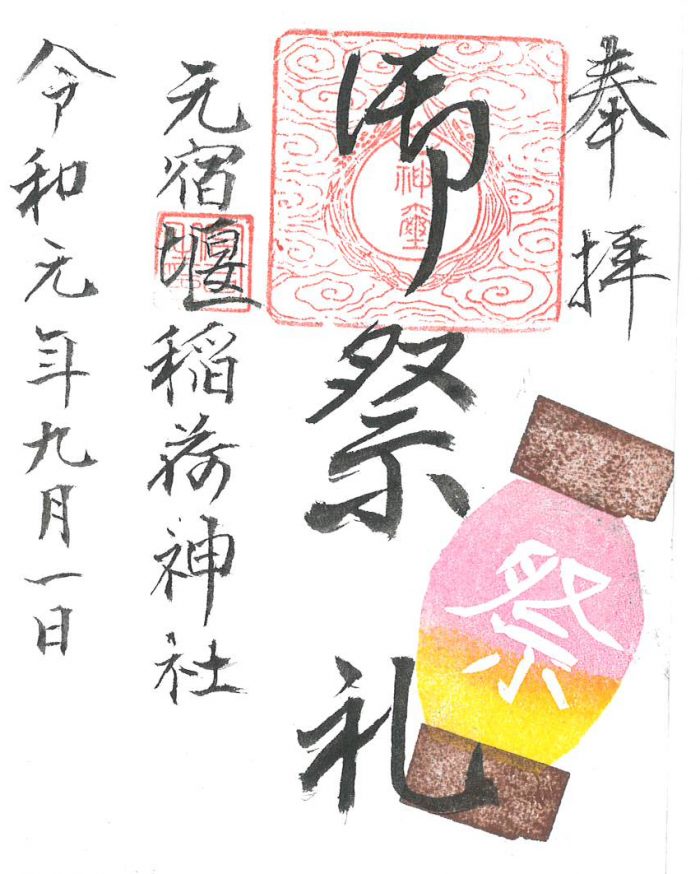 奉拝
御祭礼
神璽
祭
元宿堰稲荷神社
令和元年九月一日